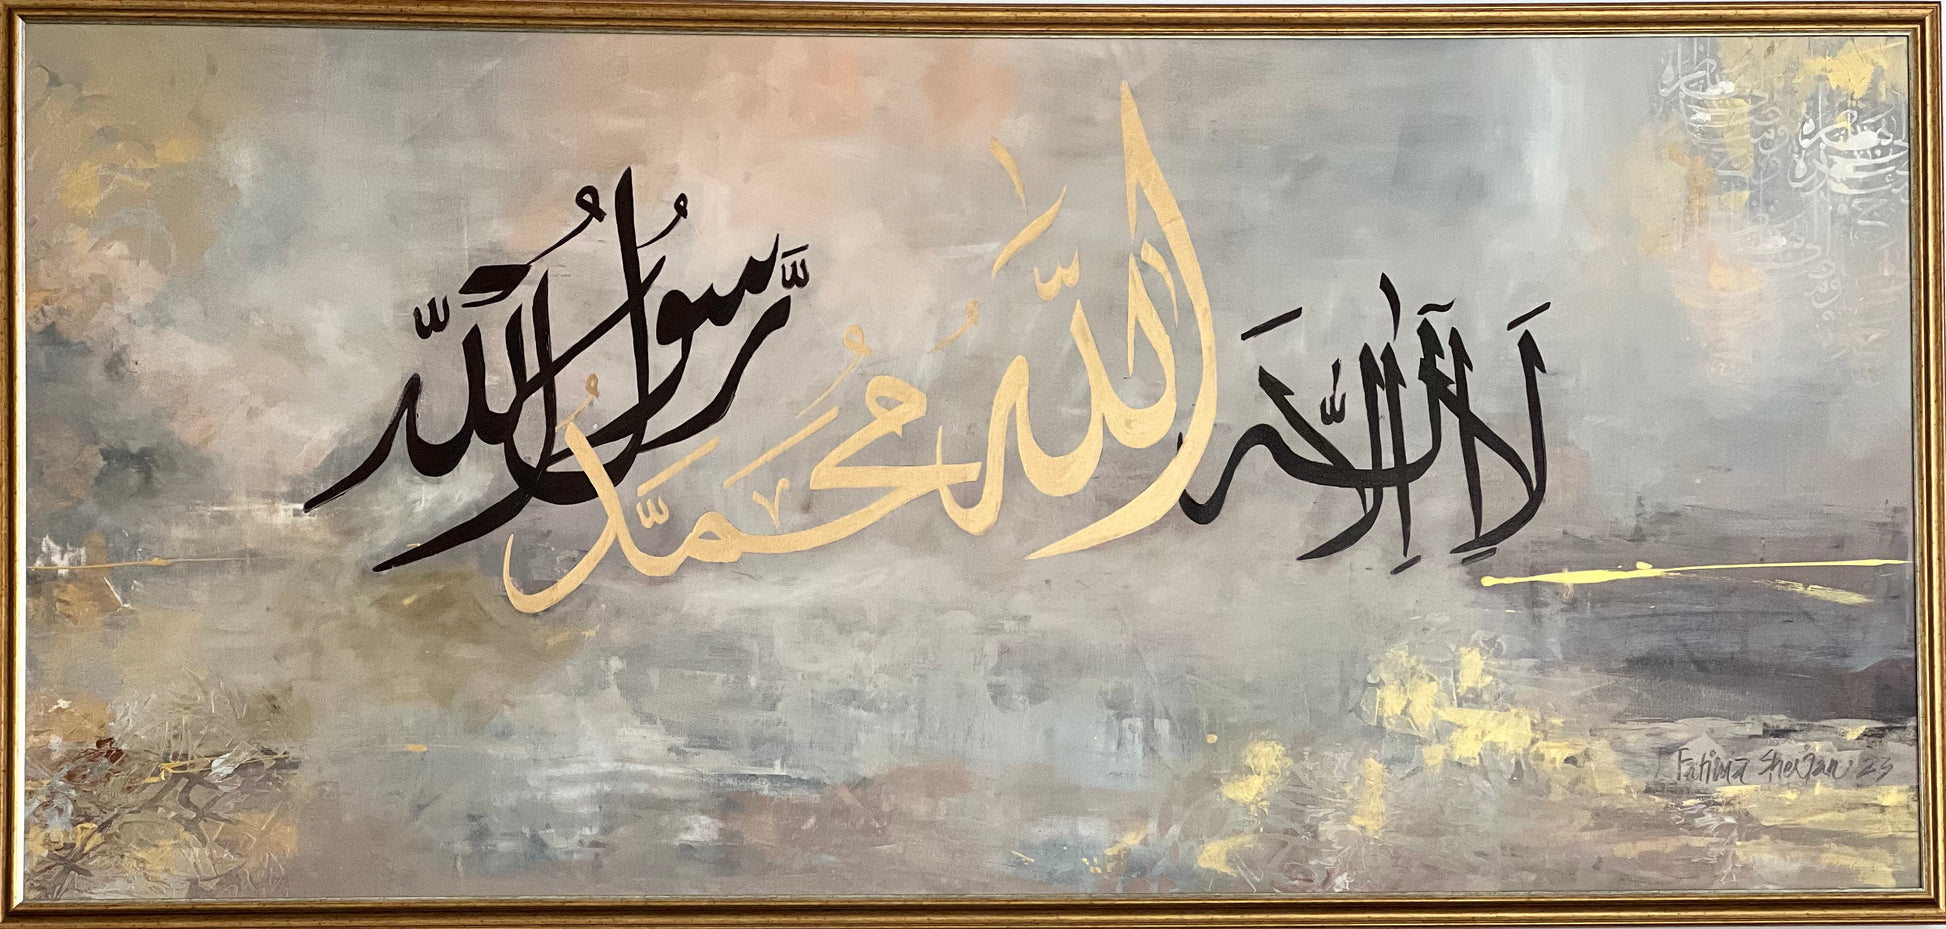 لَا إِلٰهَ إِلَّا اللّٰهُ مُحَمَّدٌ رَّسُوْلُ اللّٰهِ
Fatima Sherjan 23